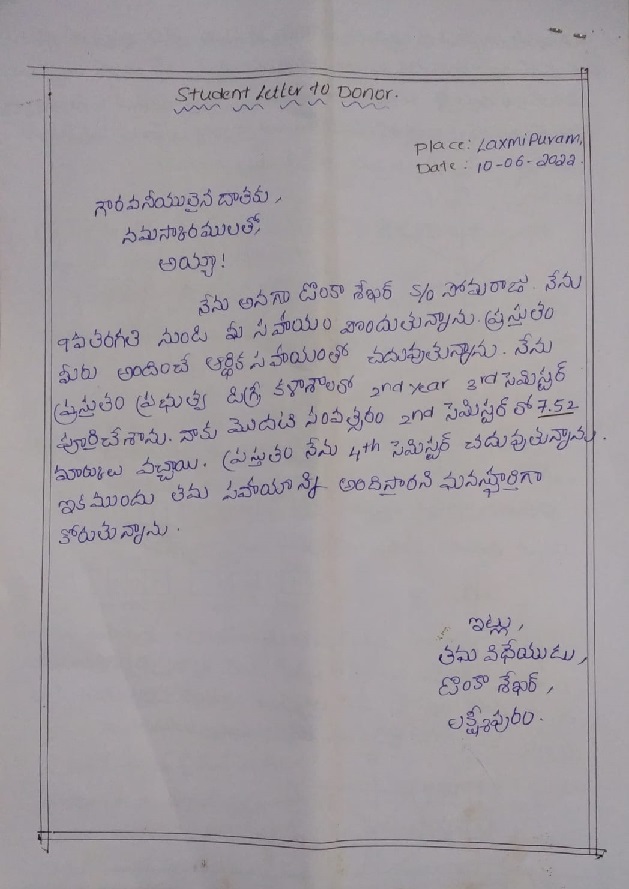 Student Letter to Donor.
Place: Laxmipuram,
Date: 10-06-2022.
గౌరవనీయులైన దాతకు,
నమస్కారములతో,
అయ్యా!
నేను అనగా టొంకా శేఖర్ S/o సోమరాజు. నేను
9వ తరగతి నుండి మీ సహాయం పొందుతున్నాను. ప్రస్తుతం
మీరు అందించే ఆర్థిక సహాయంతో చదువుతున్నాను. నేను
ప్రస్తుతం ప్రభుత్వ డిగ్రీ కళాశాలలో 2nd year 3rd సెమిస్టర్
పూర్తిచేశాను. నాకు మొదటి సంవత్సరం 2nd సెమిస్టర్ లో 7.52
మార్కులు వచ్చాయి. ప్రస్తుతం నేను 4th సెమిస్టర్ చదువుతున్నాను.
ఇకముందు తమ సహాయాన్ని అందిస్తారని మనస్ఫూర్తిగా
కోరుతున్నాను.
ఇట్లు,
తమ విధేయుడు,
టొంకా శేఖర్,
లక్ష్మీపురం.